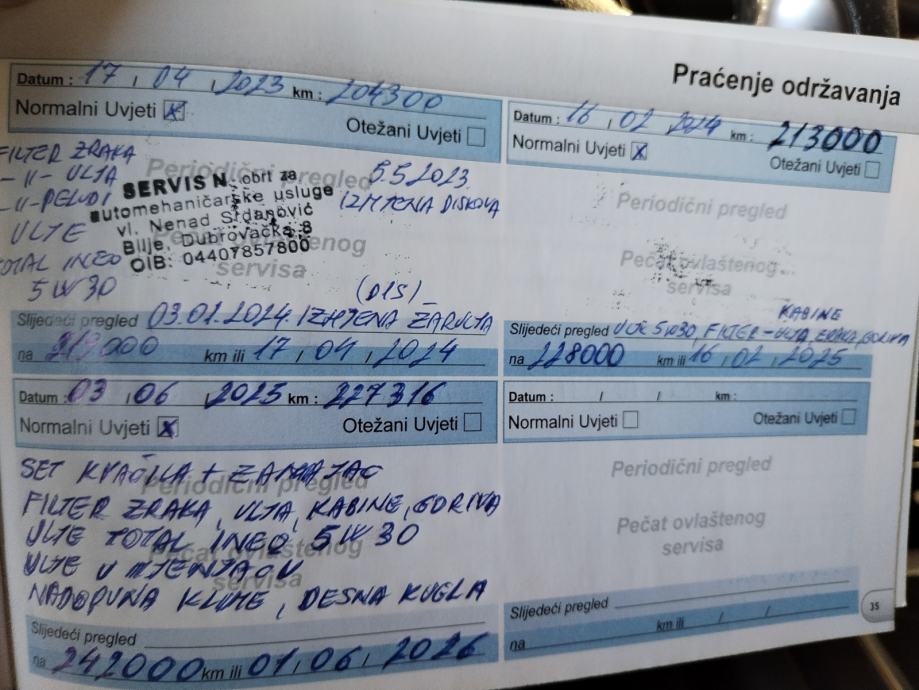 Praćenje održavanja
Datum : 17 / 04 / 2023 km : 204300
Normalni Uvjeti ☒ Otežani Uvjeti ☐
Periodični pregled
Pečat ovlaštenog
servisa
FILTER ZRAKA
-11- ULJA
-11- PELUDI
ULJE
TOTAL INEO
5W30
SERVIS N, obrt za
automehaničarske usluge
vl. Nenad Srdanović
Bilje, Dubrovačka 8
OIB: 04407857800
5.5.2023.
IZMJENA DISKOVA
(DISI)
Slijedeći pregled 03.01.2024. IZMJENA ŽARULJA
na 219000 km ili 17 / 04 / 2024
Datum : 16 / 02 2024 km : 213000
Normalni Uvjeti ☒ Otežani Uvjeti ☐
Periodični pregled
Pečat ovlaštenog
servisa
KABINE
Slijedeći pregled ULJE 5W30, FILTER - ULJA, ZRAKA, GORIVA
na 228000 km ili 16 / 02 / 2025
Datum : 03 / 06 / 2025 km : 227316
Normalni Uvjeti ☒ Otežani Uvjeti ☐
Periodični pregled
Pečat ovlaštenog
servisa
SET KVAČILA + ZAMAŠNJAK
FILTER ZRAKA, ULJA, KABINE, GORIVA
ULJE TOTAL INEO 5W30
ULJE U MJENJAČU
NADOPUNA KLIME, DESNA KUGLA
Slijedeći pregled
na 242000 km ili 01 / 06 / 2026
Datum : / / km :
Normalni Uvjeti ☐ Otežani Uvjeti ☐
Periodični pregled
Pečat ovlaštenog
servisa
Slijedeći pregled
na km ili / /
35